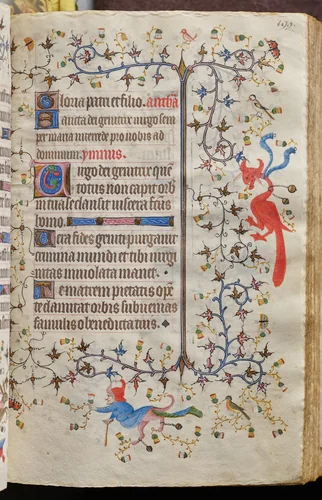 Gloria patri et filio. antiha
Sancta dei genitrix uirgo sem
per maria intercede pro nobis ad
dominum. ymnus.
Uirgo dei genitrix quē
totus non capit orb
in tua se clausit uiscera factꝰ
homo.
Uera fides geniti purgauit
crimina mundi et tibi uirgi
nitas inuiolata manet.
Te matrem pietatis opē
te clamitat orbis subuenias
famulis o benedicta tuis.